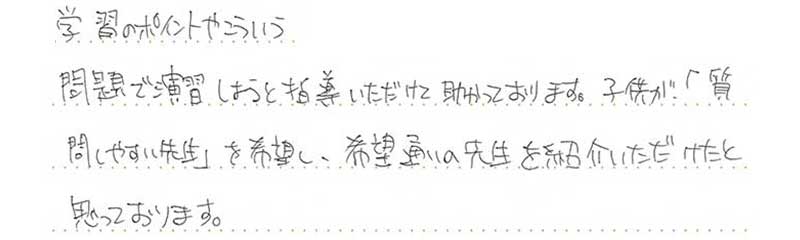 学習のポイントやこういう
問題で演習しようと指導いただけて助かっております。子供が、「質
問しやすい先生」を希望し、希望通りの先生を紹介いただけたと
思っております。